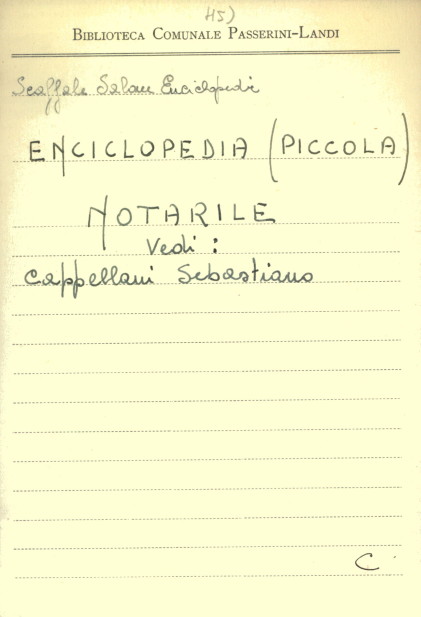 45)
BIBLIOTECA COMUNALE PASSERINI-LANDI
Scaffale Salone Enciclopedie
ENCICLOPEDIA (PICCOLA)
NOTARILE
Vedi :
Cappellani Sebastiano
C